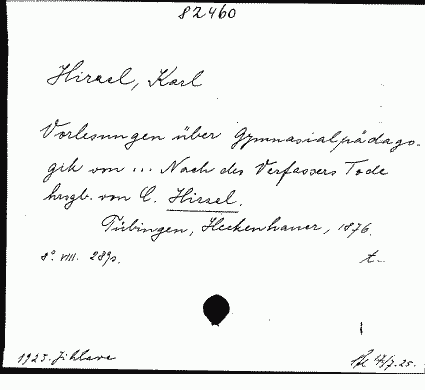 82460
Hirzel, Karl
Vorlesungen über Gymnasialpädago-
gik von ... Nach des Verfassers Tode
hrsgb. von C. Hirzel.
Tübingen, Heckenhauer, 1876.
8°. VIII. 289p.
t-
1925. Jihlava